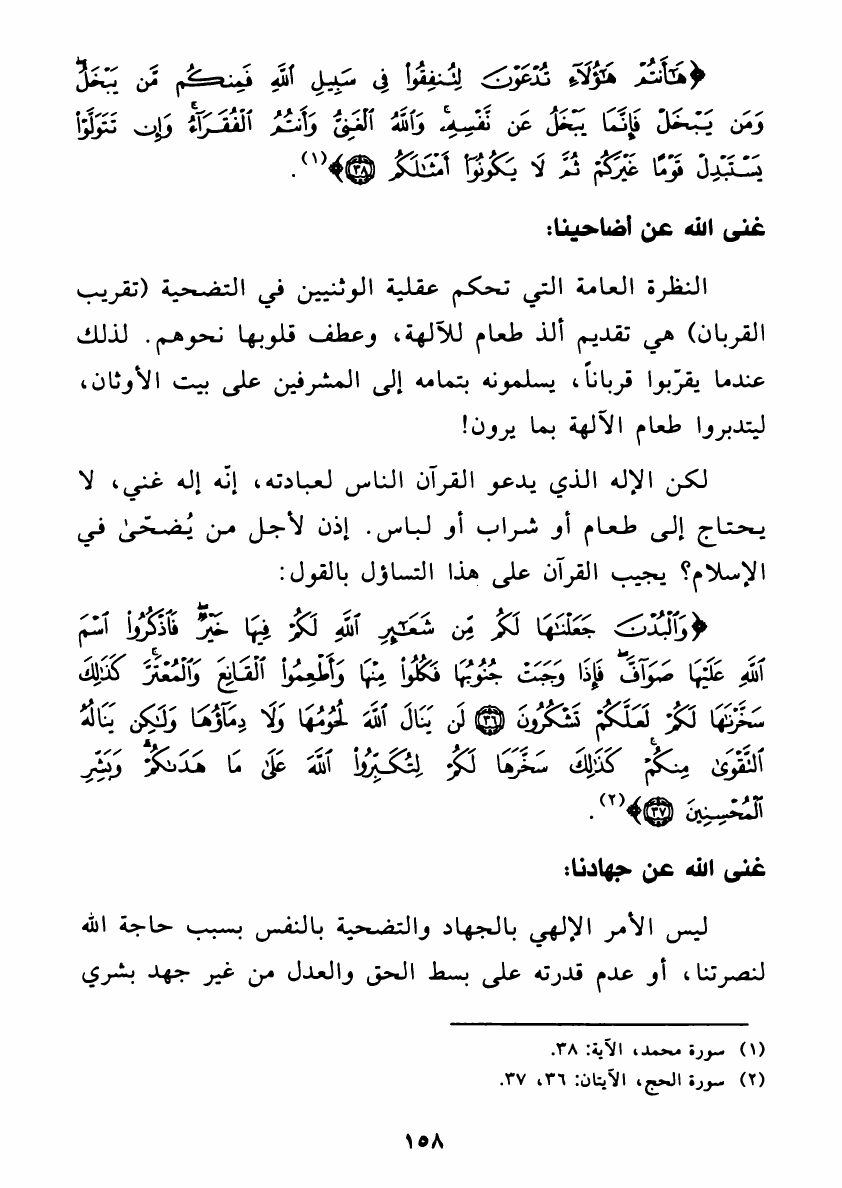 ﴿هَٰٓأَنتُمْ هَٰٓؤُلَآءِ تُدْعَوْنَ لِتُنفِقُوا۟ فِى سَبِيلِ ٱللَّهِ فَمِنكُم مَّن يَبْخَلُ ۖ
وَمَن يَبْخَلْ فَإِنَّمَا يَبْخَلُ عَن نَّفْسِهِۦ ۚ وَٱللَّهُ ٱلْغَنِىُّ وَأَنتُمُ ٱلْفُقَرَآءُ ۚ وَإِن تَتَوَلَّوْا۟
يَسْتَبْدِلْ قَوْمًا غَيْرَكُمْ ثُمَّ لَا يَكُونُوٓا۟ أَمْثَٰلَكُم ٣٨﴾(١).
غنى الله عن أضاحينا:
النظرة العامة التي تحكم عقلية الوثنيين في التضحية (تقريب
القربان) هي تقديم ألذ طعام للآلهة، وعطف قلوبها نحوهم. لذلك
عندما يقرّبوا قرباناً، يسلمونه بتمامه إلى المشرفين على بيت الأوثان،
ليتدبروا طعام الآلهة بما يرون!
لكن الإله الذي يدعو القرآن الناس لعبادته، إنّه إله غني، لا
يحتاج إلى طعام أو شراب أو لباس. إذن لأجل من يُضحّىٰ في
الإسلام؟ يجيب القرآن على هذا التساؤل بالقول:
﴿وَٱلْبُدْنَ جَعَلْنَٰهَا لَكُم مِّن شَعَٰٓئِرِ ٱللَّهِ لَكُمْ فِيهَا خَيْرٌ ۖ فَٱذْكُرُوا۟ ٱسْمَ
ٱللَّهِ عَلَيْهَا صَوَآفَّ ۖ فَإِذَا وَجَبَتْ جُنُوبُهَا فَكُلُوا۟ مِنْهَا وَأَطْعِمُوا۟ ٱلْقَانِعَ وَٱلْمُعْتَرَّ ۚ كَذَٰلِكَ
سَخَّرْنَٰهَا لَكُمْ لَعَلَّكُمْ تَشْكُرُونَ ٣٦ لَن يَنَالَ ٱللَّهَ لُحُومُهَا وَلَا دِمَآؤُهَا وَلَٰكِن يَنَالُهُ
ٱلتَّقْوَىٰ مِنكُمْ ۚ كَذَٰلِكَ سَخَّرَهَا لَكُمْ لِتُكَبِّرُوا۟ ٱللَّهَ عَلَىٰ مَا هَدَىٰكُمْ ۗ وَبَشِّرِ
ٱلْمُحْسِنِينَ ٣٧﴾(٢).
غنى الله عن جهادنا:
ليس الأمر الإلهي بالجهاد والتضحية بالنفس بسبب حاجة الله
لنصرتنا، أو عدم قدرته على بسط الحق والعدل من غير جهد بشري
(١) سورة محمد، الآية: ٣٨.
(٢) سورة الحج، الآيتان: ٣٦، ٣٧.
١٥٨